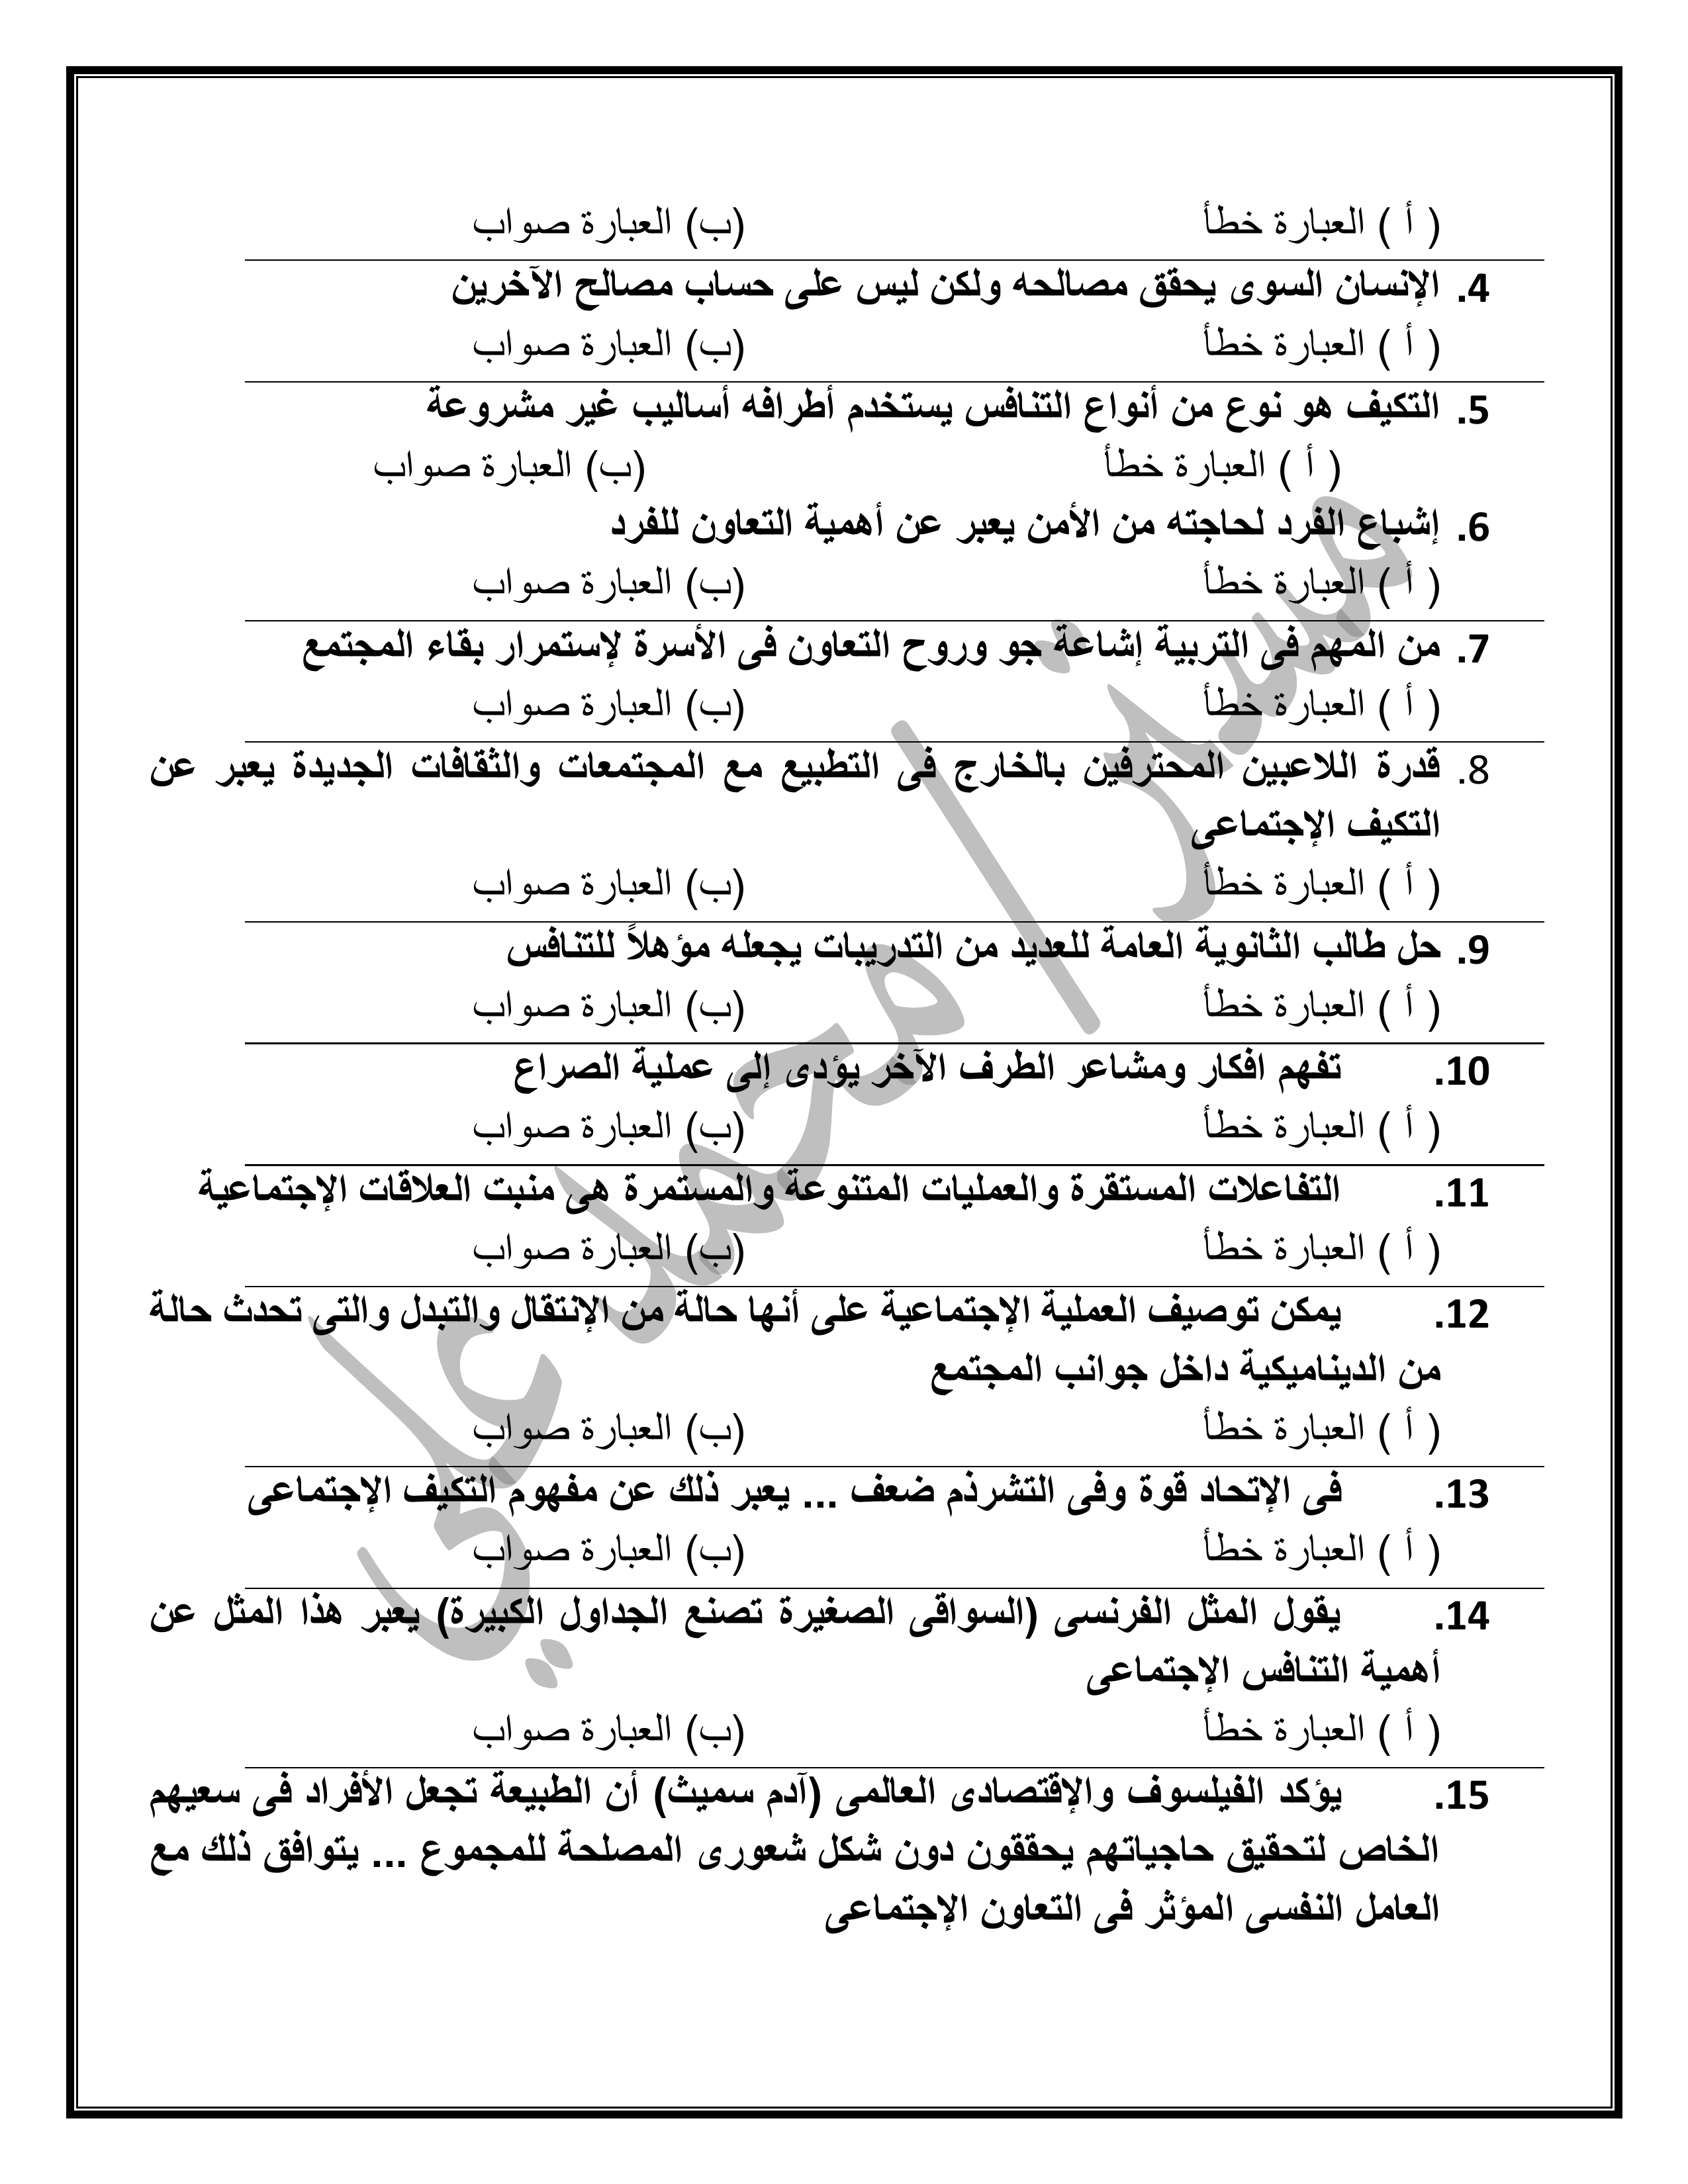 ( أ ) العبارة خطأ (ب) العبارة صواب
4. الإنسان السوى يحقق مصالحه ولكن ليس على حساب مصالح الآخرين
( أ ) العبارة خطأ (ب) العبارة صواب
5. التكيف هو نوع من أنواع التنافس يستخدم أطرافه أساليب غير مشروعة
( أ ) العبارة خطأ (ب) العبارة صواب
6. إشباع الفرد لحاجته من الأمن يعبر عن أهمية التعاون للفرد
( أ ) العبارة خطأ (ب) العبارة صواب
7. من المهم فى التربية إشاعة جو وروح التعاون فى الأسرة لإستمرار بقاء المجتمع
( أ ) العبارة خطأ (ب) العبارة صواب
8. قدرة اللاعبين المحترفين بالخارج فى التطبيع مع المجتمعات والثقافات الجديدة يعبر عن
التكيف الإجتماعى
( أ ) العبارة خطأ (ب) العبارة صواب
9. حل طالب الثانوية العامة للعديد من التدريبات يجعله مؤهلاً للتنافس
( أ ) العبارة خطأ (ب) العبارة صواب
10. تفهم افكار ومشاعر الطرف الآخر يؤدى إلى عملية الصراع
( أ ) العبارة خطأ (ب) العبارة صواب
11. التفاعلات المستقرة والعمليات المتنوعة والمستمرة هى منبت العلاقات الإجتماعية
( أ ) العبارة خطأ (ب) العبارة صواب
12. يمكن توصيف العملية الإجتماعية على أنها حالة من الإنتقال والتبدل والتى تحدث حالة
من الديناميكية داخل جوانب المجتمع
( أ ) العبارة خطأ (ب) العبارة صواب
13. فى الإتحاد قوة وفى التشرذم ضعف ... يعبر ذلك عن مفهوم التكيف الإجتماعى
( أ ) العبارة خطأ (ب) العبارة صواب
14. يقول المثل الفرنسى (السواقى الصغيرة تصنع الجداول الكبيرة) يعبر هذا المثل عن
أهمية التنافس الإجتماعى
( أ ) العبارة خطأ (ب) العبارة صواب
15. يؤكد الفيلسوف والإقتصادى العالمى (آدم سميث) أن الطبيعة تجعل الأفراد فى سعيهم
الخاص لتحقيق حاجياتهم يحققون دون شكل شعورى المصلحة للمجموع ... يتوافق ذلك مع
العامل النفسى المؤثر فى التعاون الإجتماعى
مستر / محمد علي